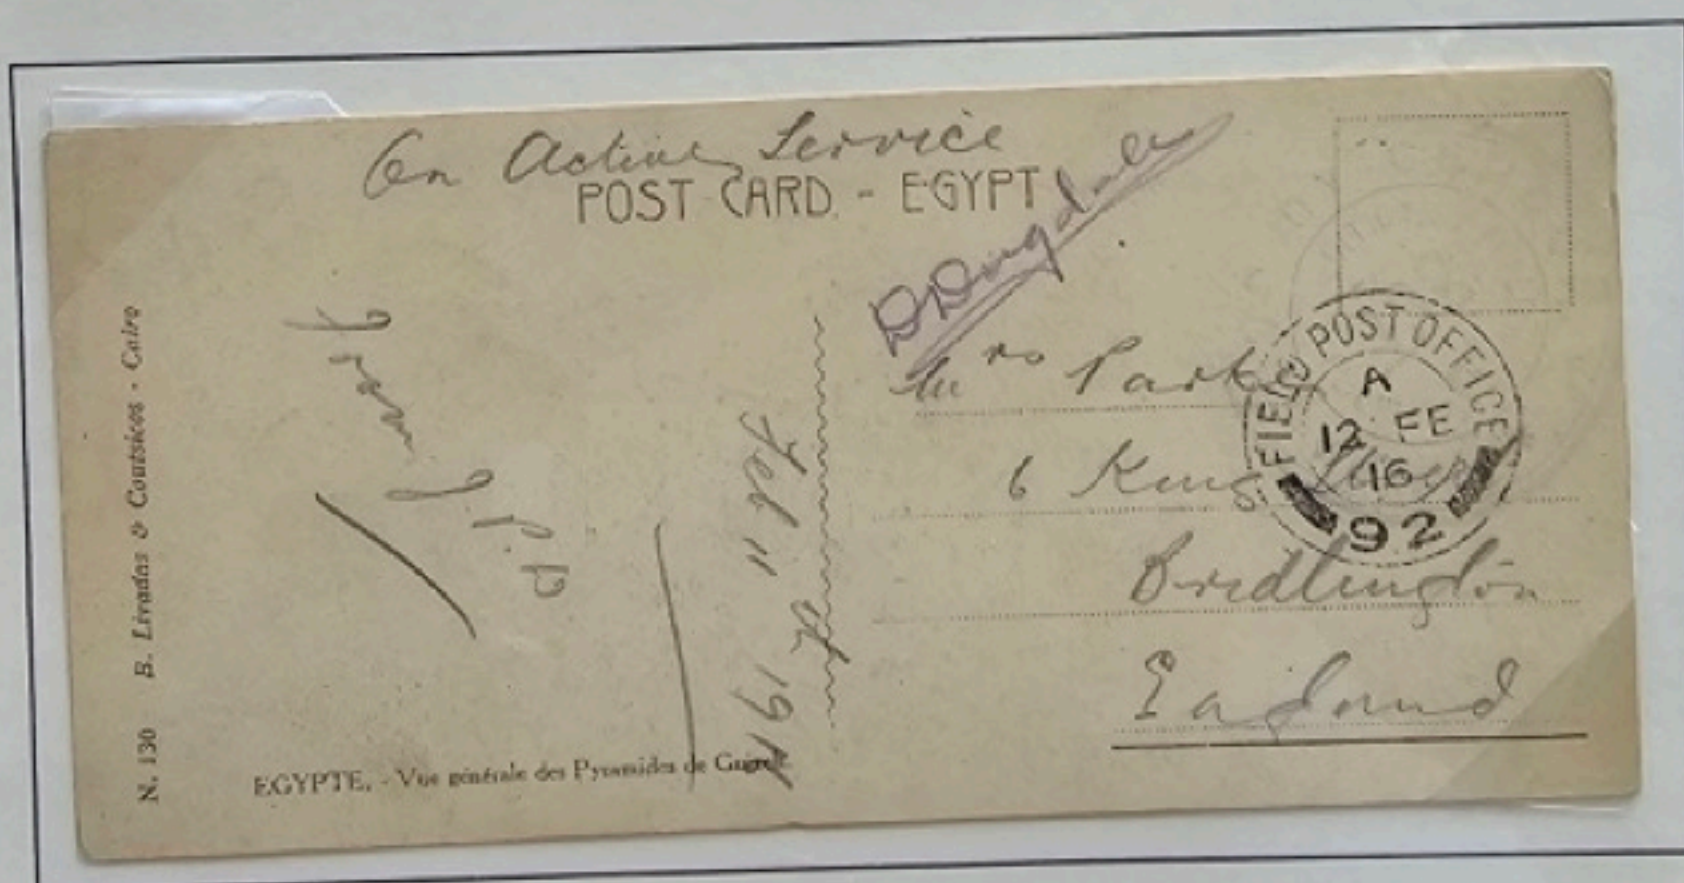 On Active Service
POST CARD - EGYPT
D Dugdale
Mrs Park
6 King
Bridlington
England
FIELD POST OFFICE
A
12 FE
16
92
Feb 11th 1916
from
N. 130 B. Livadas & Coutsicos - Cairo
EGYPTE. - Vue générale des Pyramides de